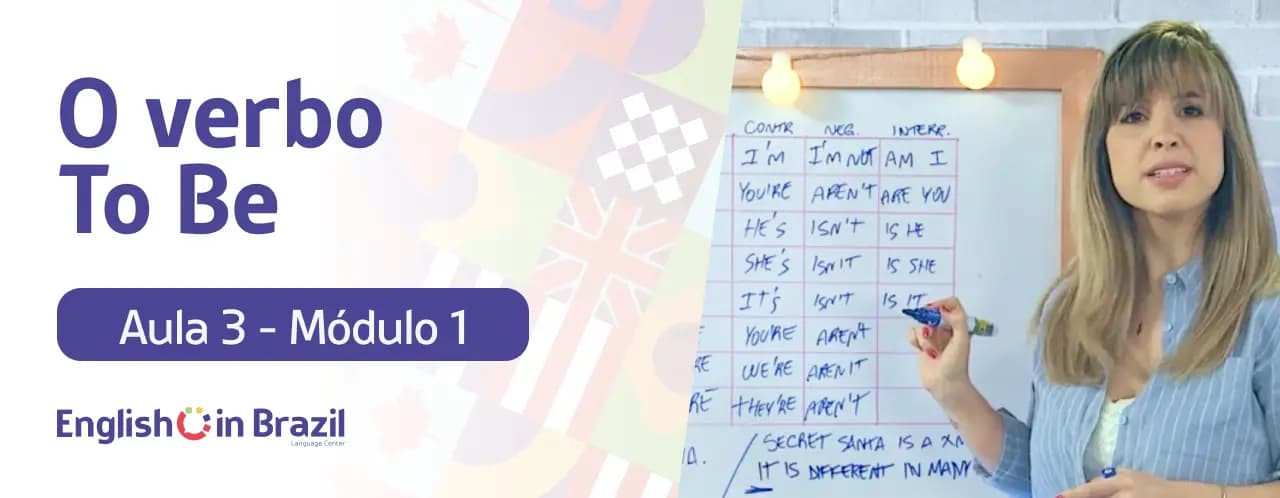 O verbo
To Be
Aula 3 - Módulo 1
English in Brazil
Language Center
CONTR NEG. INTERR.
I'M I'M NOT AM I
YOU'RE AREN'T ARE YOU
HE'S ISN'T IS HE
SHE'S ISN'T IS SHE
IT'S ISN'T IS IT
YOU'RE AREN'T
RE WE'RE AREN'T
RE THEY'RE AREN'T
/ SECRET SANTA IS A XM
IT IS DIFFERENT IN MANY